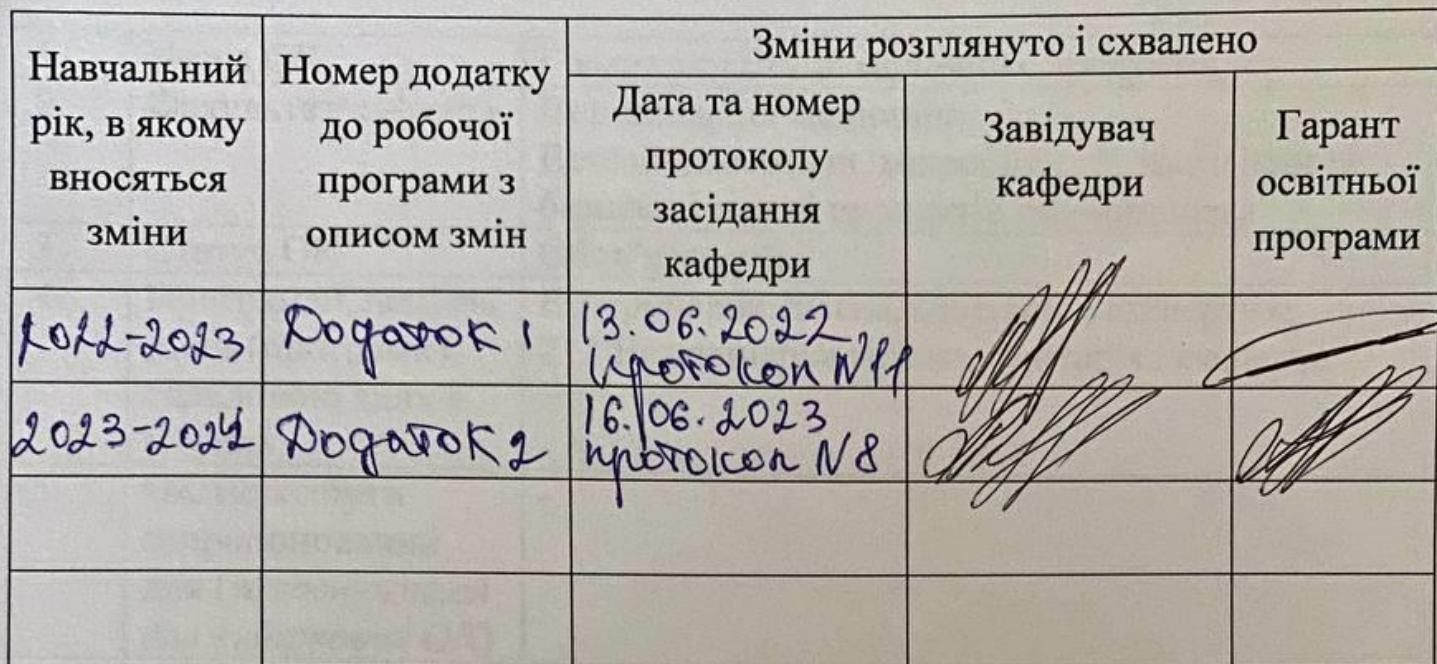 Навчальний
рік, в якому
вносяться
зміни
Номер додатку
до робочої
програми з
описом змін
Зміни розглянуто і схвалено
Дата та номер
протоколу
засідання
кафедри
Завідувач
кафедри
Гарант
освітньої
програми
2022-2023 Додаток 1 13.06.2022,
протокол №11
2023-2024 Додаток 2 16.06.2023
протокол №8